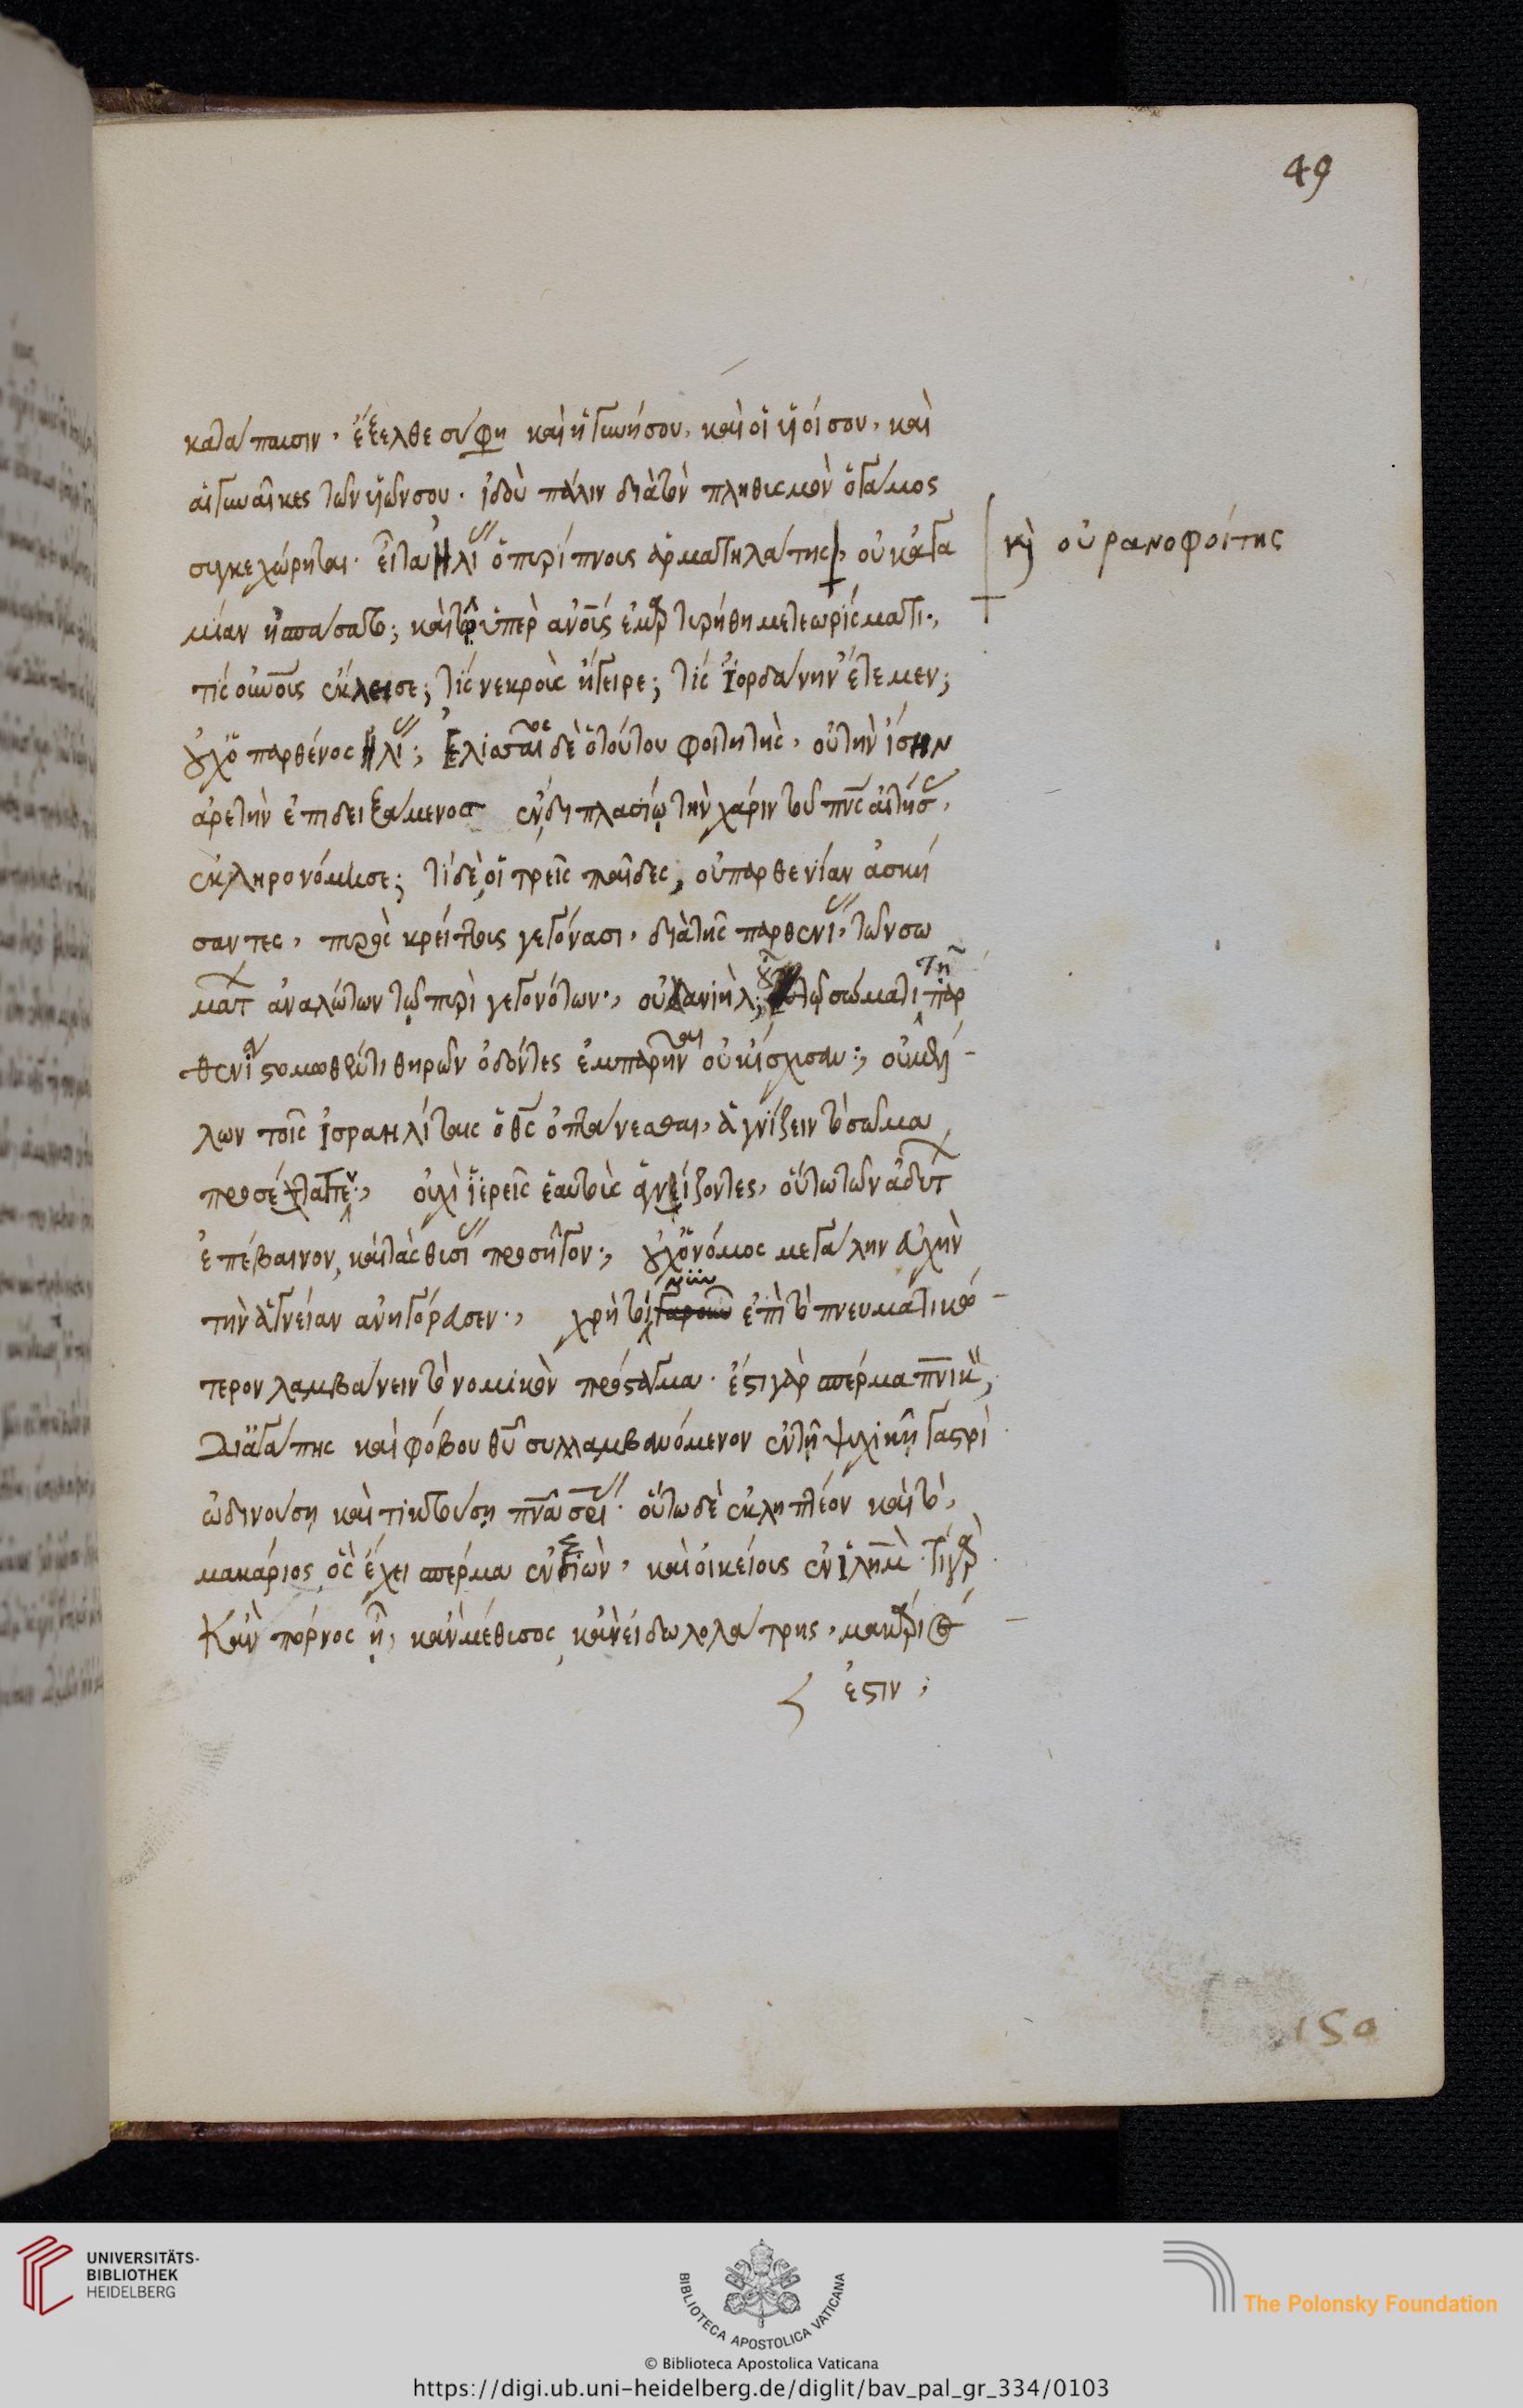 49
κατάπαυσιν. ἔξελθε σύ φη καὶ ἡ γυνή σου, καὶ οἱ υἱοί σου, καὶ
αἱ γυναῖκες τῶν υἱῶν σου. ἰδοὺ πάλιν διὰ τὸν πληθισμὸν ὁ γάμος
συγκεχώρηται. εἶτα Ἠλί ὁ πυρίπνους ἁρματηλάτης, οὐκ ἀγα
κὶ οὐρανοφοίτης
μίαν ἠσπάσατο; καὶ τῷ ὑπὲρ ἀνοῖς ἐμαρτυρήθη μετεωρίσματι.,
τίς οὐνοῖς ἔκλεισε; τίς νεκροὺς ἤγειρε; τίς Ἰορδάνην ἔτεμεν;
οὐχ ὁ παρθένος Ἠλί; Ἐλισσαῖος δὲ ὁ τούτου φοιτητὴς, οὐ τὴν ἴσην
ἀρετὴν ἐπιδειξάμενος ἐν διπλασίῳ τὴν χάριν τοῦ πνς αἰτήσ,
ἐκληρονόμησε; τί δὲ οἱ τρεῖς παῖδες, οὐ παρθενίαν ἀσκή
σαντες, πυρὸς κρείττους γεγόνασι, διὰ τῆς παρθενί, τῶν σω
ματ ἀναλώτων τῷ πυρὶ γεγονότων., οὐ Δανιὴλ; οὗ τῷ σώματι τῇ παρ
θενίᾳ στομωθέντι θηρῶν ὀδόντες ἐμπαρῆναι οὐκ ἴσχυσαν:, οὐ μέλ-
λων τοῖς Ἰσραηλίταις ὁ θς ὀπτάνεσθαι, ἁγνίζειν τὸ σῶμα
προσέταττεν:, οὐχὶ ἱερεῖς ἑαυτοὺς ἁγνίζοντες, οὕτω τῶν ἀδύτ
ἐπέβαινον, καὶ τὰς θυσί προσῆγον:, οὐχ ὁ νόμος μεγάλην εὐχὴν
τὴν ἁγνείαν ἀνηγόρευσεν., χρὴ τοίνυν ἐπὶ τὸ πνευματικώ-
τερον λαμβάνειν τὸ νομικὸν πρόσταγμα. ἔστι γὰρ σπέρμα πνικὸν,
Δι' ἀγάπης καὶ φόβου θυ συλλαμβανόμενον ἐν τῇ ψυχικῇ γαστρὶ
ὠδινούση καὶ τικτούση πνα σρί. οὕτω δὲ ἐκληπτέον καὶ τὸ,
μακάριος ὃς ἔχει σπέρμα ἐν Σιὼν, καὶ οἰκείους ἐν Ἰλημ. τί γὰρ
Κἂν πόρνος ᾖ, κἂν μέθυσος, κἂν εἰδωλολάτρης, μακάριός
ἐστιν;
150
UNIVERSITÄTS-
BIBLIOTHEK
HEIDELBERG
BIBLIOTECA APOSTOLICA VATICANA
The Polonsky Foundation
© Biblioteca Apostolica Vaticana
https://digi.ub.uni-heidelberg.de/diglit/bav_pal_gr_334/0103